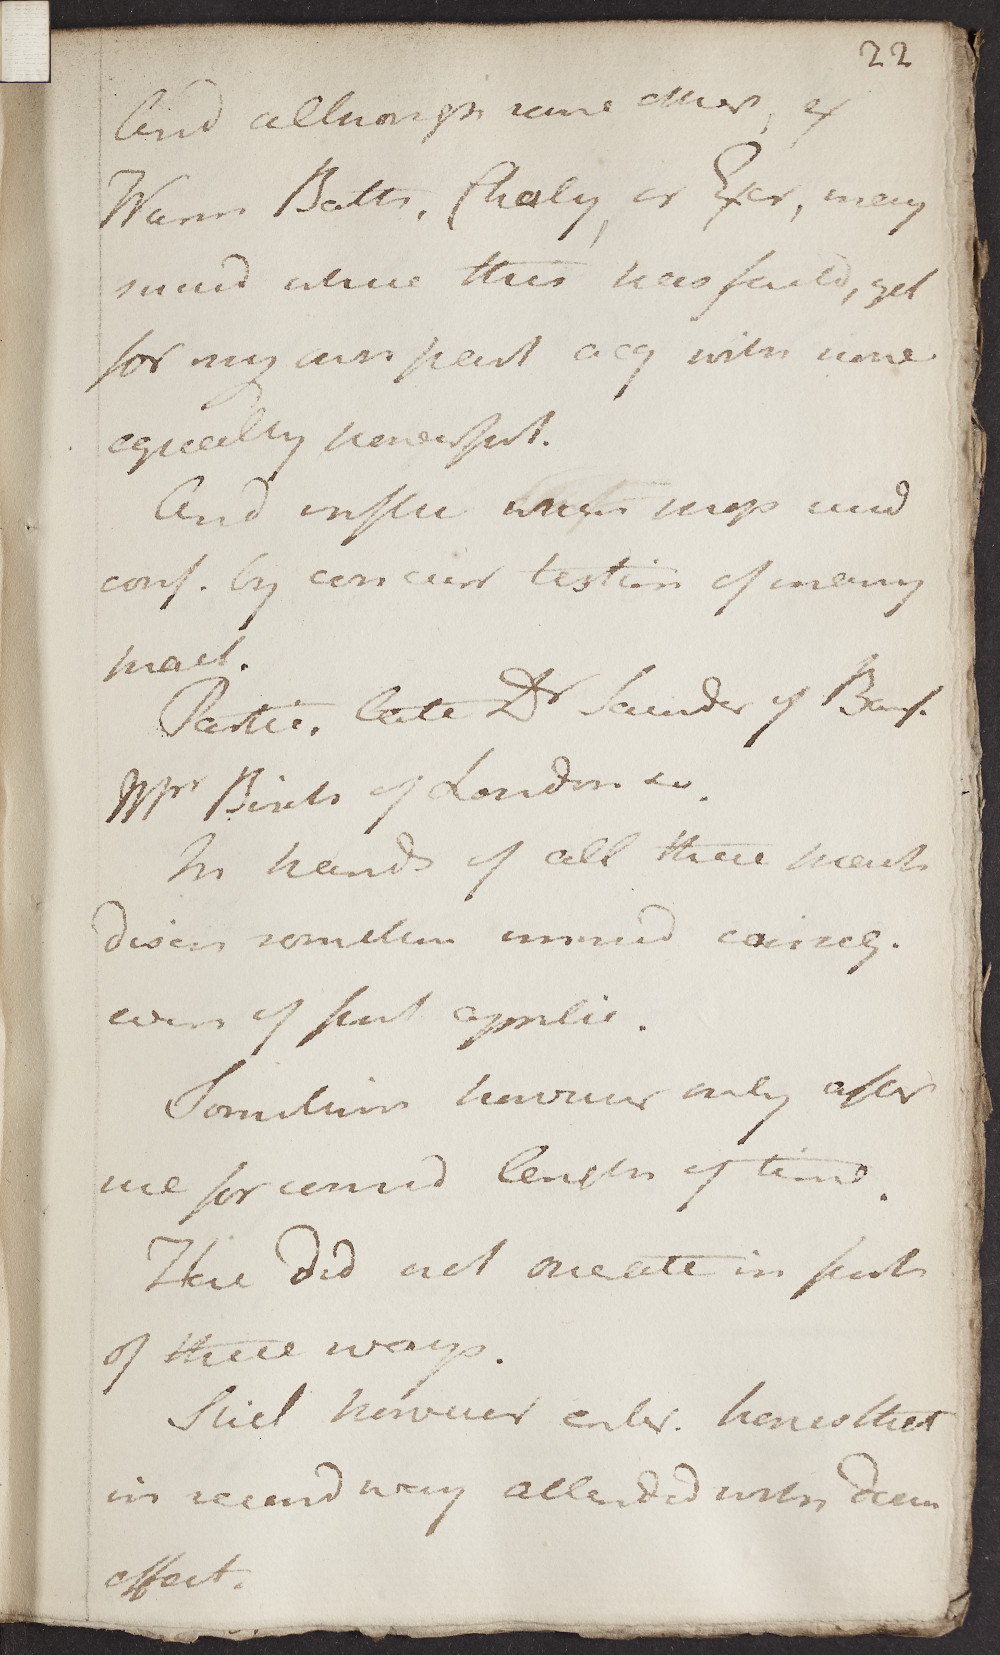 22
And although some other, of
Warm Bath, Chaly, or Exer, may
succed where this has faild, yet
for my own part acq with none
equally powerfull.
And influ which
conf. by concurr testim of many
pract.
Partic. late Dr Saunder of Banf.
Mrs Birch of London &c.
In hands of all these
discov sometim immed conseq.
even of first applic.
Sometimes however only after
use for consid length of time.
Here did not operate in first
of these ways.
Still however enter. hopes that
in second way attended with
effect.